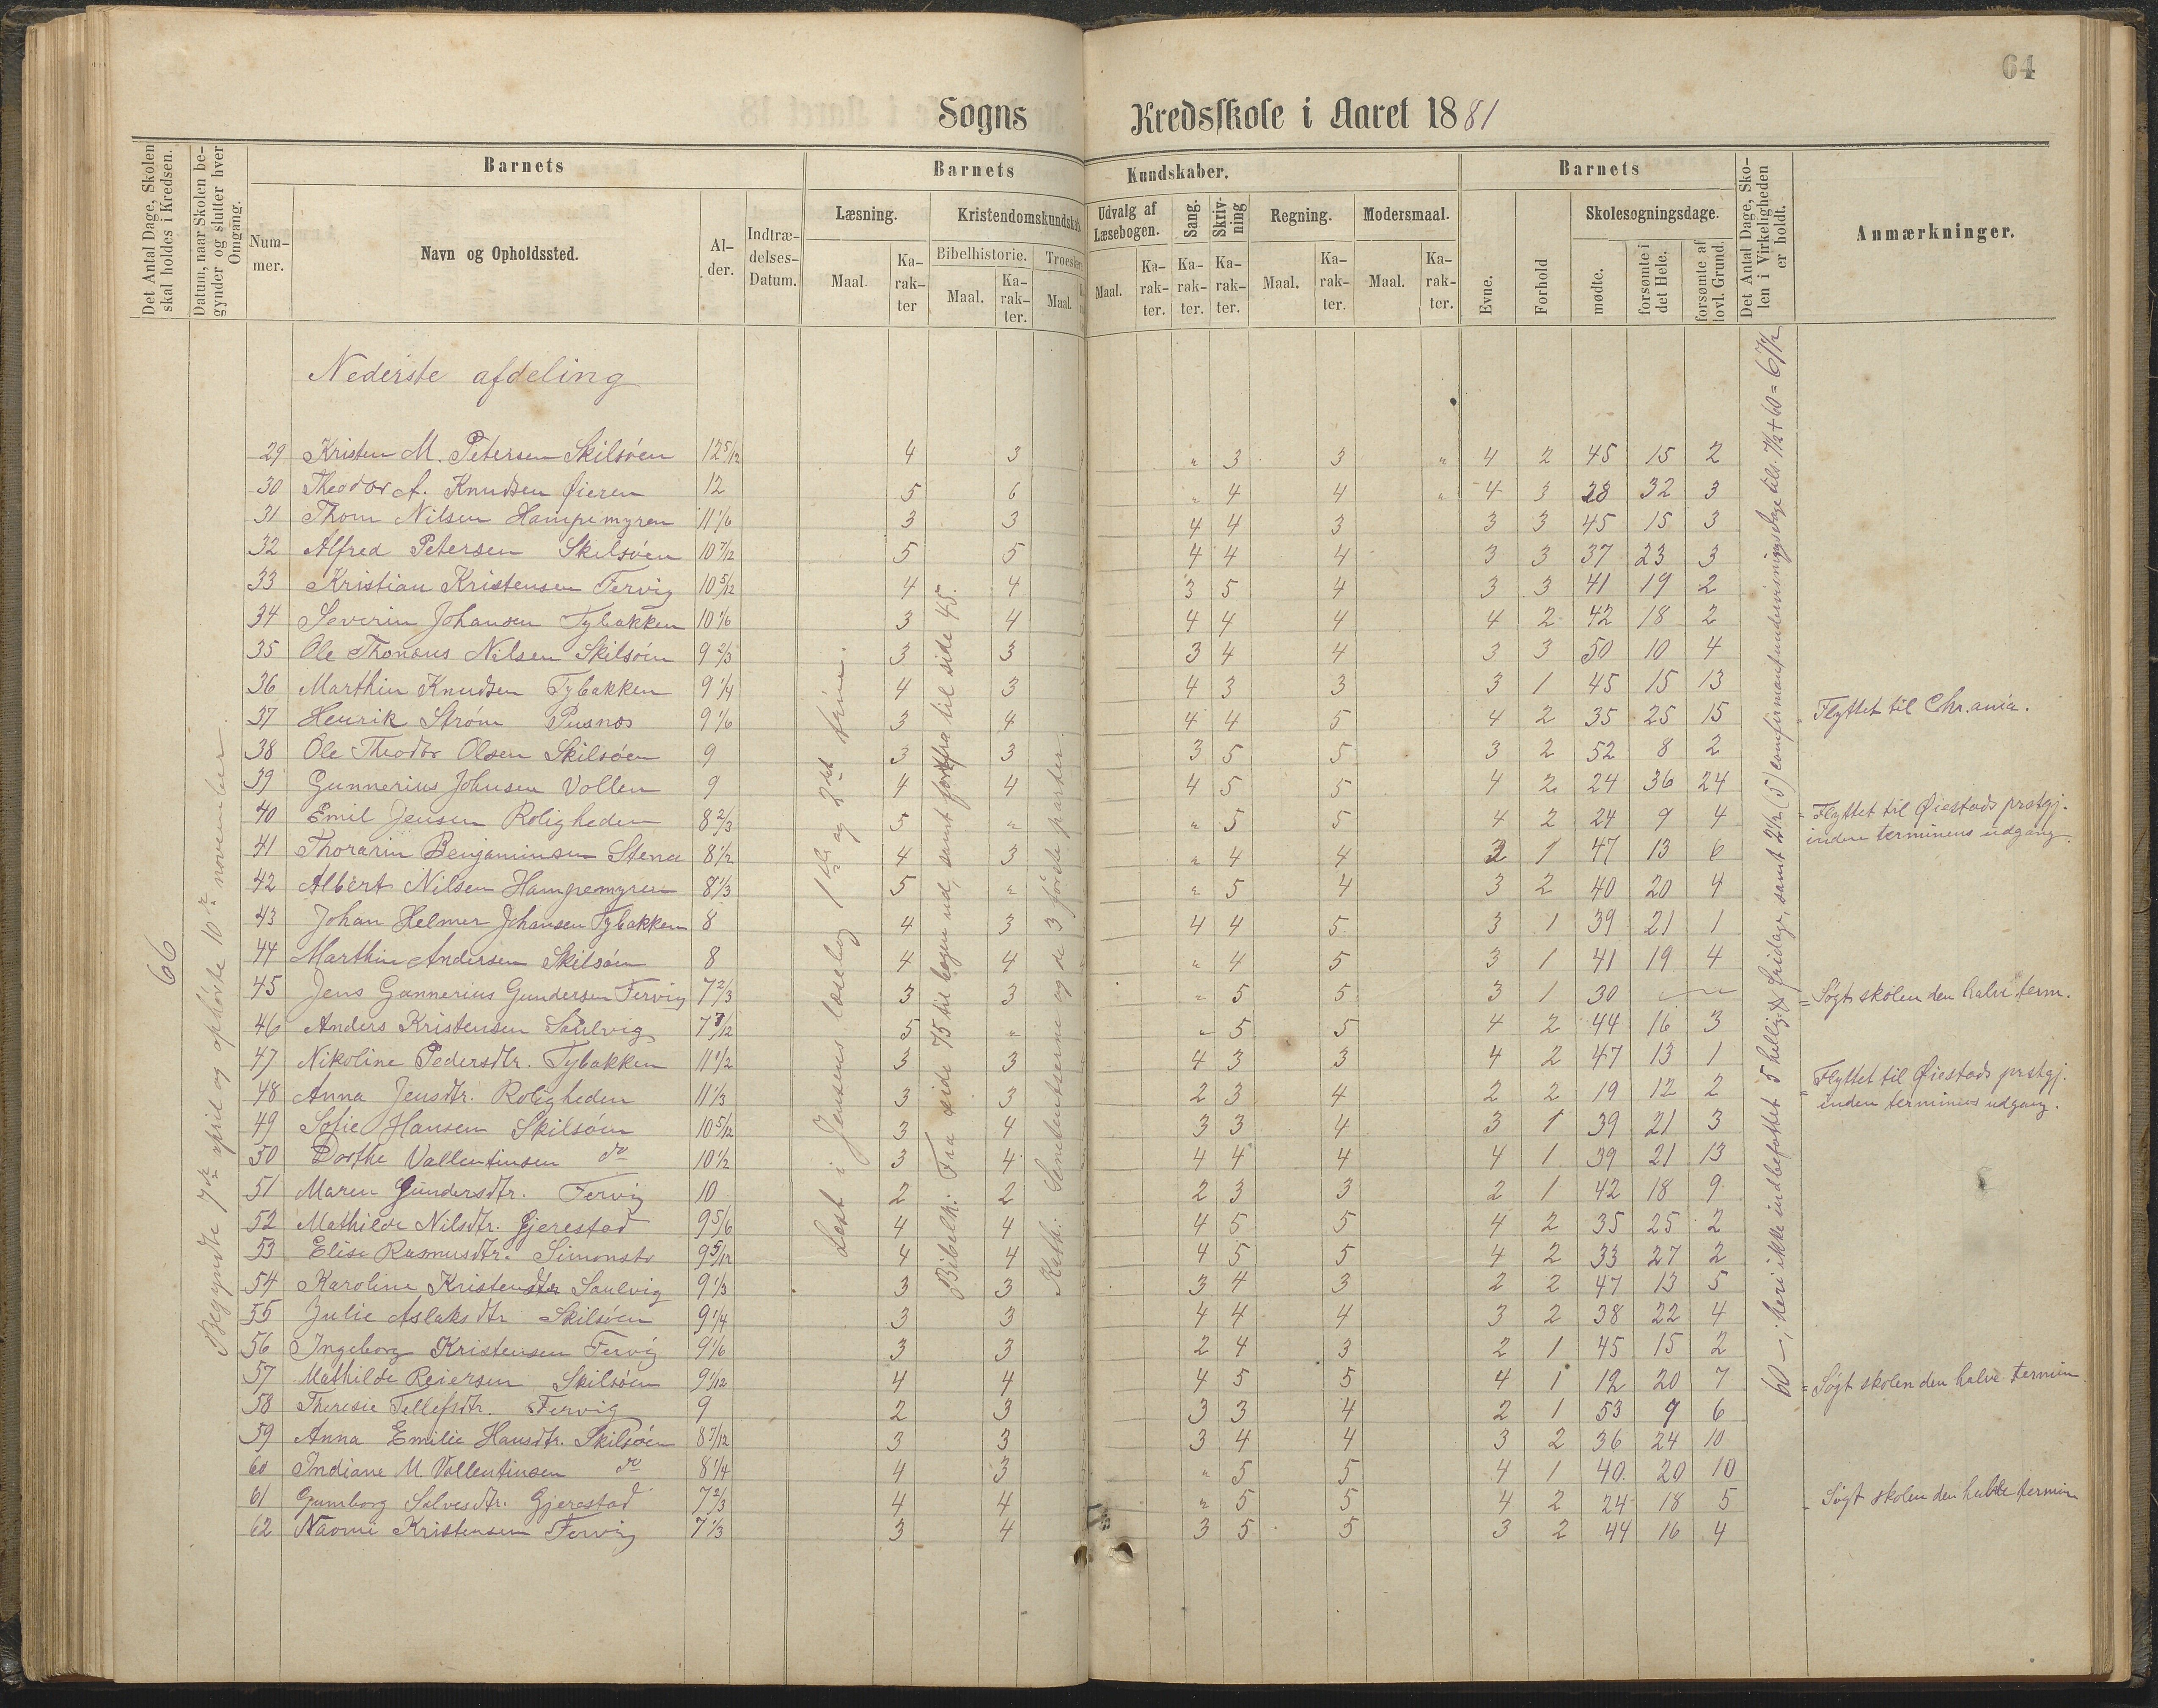 64
Sogns Kredsskole i Aaret 1881
Det Antal Dage, Skolen skal holdes i Kredsen.
Datum, naar Skolen begynder og slutter hver Omgang.
Barnets
Nummer.
Navn og Opholdssted.
Alder.
Indtrædelses-Datum.
Barnets Kundskaber.
Læsning.
Maal.
Karakter
Kristendomskundskab
Bibelhistorie.
Maal.
Karakter.
Troeslære
Maal.
Udvalg af Læsebogen.
Maal.
Karakter.
Sang.
Karakter.
Skrivning
Karakter.
Regning.
Maal.
Karakter.
Modersmaal.
Maal.
Karakter.
Barnets
Evne.
Forhold
Skolesøgningsdage.
mødte.
forsømte i det Hele.
forsømte af lovl. Grund.
Det Antal Dage, Skolen i Virkeligheden er holdt.
Anmærkninger.
Nederste afdeling
66
Begyndte 7de april og ophövte 10de november.
Læst i Jensens læsebog 1ste og 2det trin.
Bibelh: Fra side 75 til bogen ud, samt forfra til side 45.
Kath: Sententserne og de 3 første parter.
60 –, heri ikke indbefattet 5 hellig- & fridage, samt 2½ (5) comfirmantundervisningsdage
29 Kristen M. Petersen Skilsöen 12 5/12 4 3 " 3 3 " 4 2 45 15 2
30 Theodor A. Knudsen Öieren 12 5 6 " 4 4 " 4 3 28 32 3
31 Thom Nilsen Hampemyren 11 1/6 3 3 4 4 3 3 3 45 15 3
32 Alfred Petersen Skilsöen 10 7/12 5 5 4 4 4 3 3 37 23 3
33 Kristian Kristensen Fervig 10 5/12 4 4 3 5 4 3 3 41 19 2
34 Severin Johansen Tybakken 10 1/6 3 4 4 4 4 4 2 42 18 2
35 Ole Thomas Nilsen Skilsöen 9 2/3 3 3 3 4 4 3 3 50 10 4
36 Marthin Knudsen Tybakken 9 1/4 4 3 4 3 3 3 1 45 15 13
37 Henrik Ström Pusnes 9 1/6 3 4 4 4 5 4 2 35 25 15 Flyttet til Chr.ania.
38 Ole Theodor Olsen Skilsöen 9 3 3 3 5 5 3 2 52 8 2
39 Gunnerius Johnsen Vollen 9 4 4 4 5 5 4 2 24 36 24
40 Emil Jensen Roligheden 8 2/3 5 " " 5 5 4 2 24 9 4 Flyttet til Öiestads prstgj. inden terminens udgang.
41 Thorarin Benjaminsen Stena 8 1/2 4 3 " 4 4 3 1 47 13 6
42 Albert Nilsen Hampemyren 8 1/3 5 " " 5 4 3 2 40 20 4
43 Johan Helmer Johansen Tybakken 8 4 3 4 4 5 3 1 39 21 1
44 Marthin Andersen Skilsöen 8 4 4 " 4 5 3 1 41 19 4
45 Jens Gunnerius Gundersen Fervig 7 2/3 3 3 " 5 5 3 1 30 – – Søgt skolen den halve term.
46 Anders Kristensen Saulvig 7 7/12 5 " " 5 5 4 2 44 16 3
47 Nikoline Pedersdtr. Tybakken 11 1/2 3 3 4 3 3 4 2 47 13 1
48 Anna Jensdtr. Roligheden 11 1/3 3 3 2 3 4 2 2 19 12 2 Flyttet til Öiestads prstgj. inden terminens udgang.
49 Sofie Hansen Skilsöen 10 5/12 3 4 3 3 4 3 1 39 21 3
50 Dorthe Vallentinsen do 10 1/2 3 4 4 4 4 4 1 39 21 13
51 Maren Gundersdtr. Fervig 10 2 2 2 3 3 2 1 42 18 9
52 Mathilde Nilsdtr. Gjerestad 9 5/6 4 4 4 5 5 4 2 35 25 2
53 Elise Rasmusdtr. Simonstö 9 5/12 4 4 4 5 5 4 2 33 27 2
54 Karoline Kristensdtr Saulvig 9 1/3 3 3 3 4 3 2 2 47 13 5
55 Julie Aslaksdtr Skilsöen 9 1/4 3 3 4 4 4 3 2 38 22 4
56 Ingeborg Kristensen Fervig 9 1/6 3 3 2 4 3 2 1 45 15 2
57 Mathilde Reiersen Skilsöen 9 1/12 4 4 4 5 5 4 1 12 20 7 Søgt skolen den halve termin
58 Theresie Tellefsdtr. Fervig 9 2 3 3 3 4 2 1 53 9 6
59 Anna Emilie Hansdtr. Skilsöen 8 7/12 3 3 3 4 4 3 2 36 24 10
60 Indiane M Vallentinsen do 8 1/4 4 3 " 5 5 4 1 40 20 10
61 Gumborg Salvesdtr. Gjerestad 7 2/3 4 4 " 5 5 4 2 24 18 5 Søgt skolen den halve termin
62 Naomi Kristensen Fervig 7 1/3 3 4 3 5 5 3 2 44 16 4